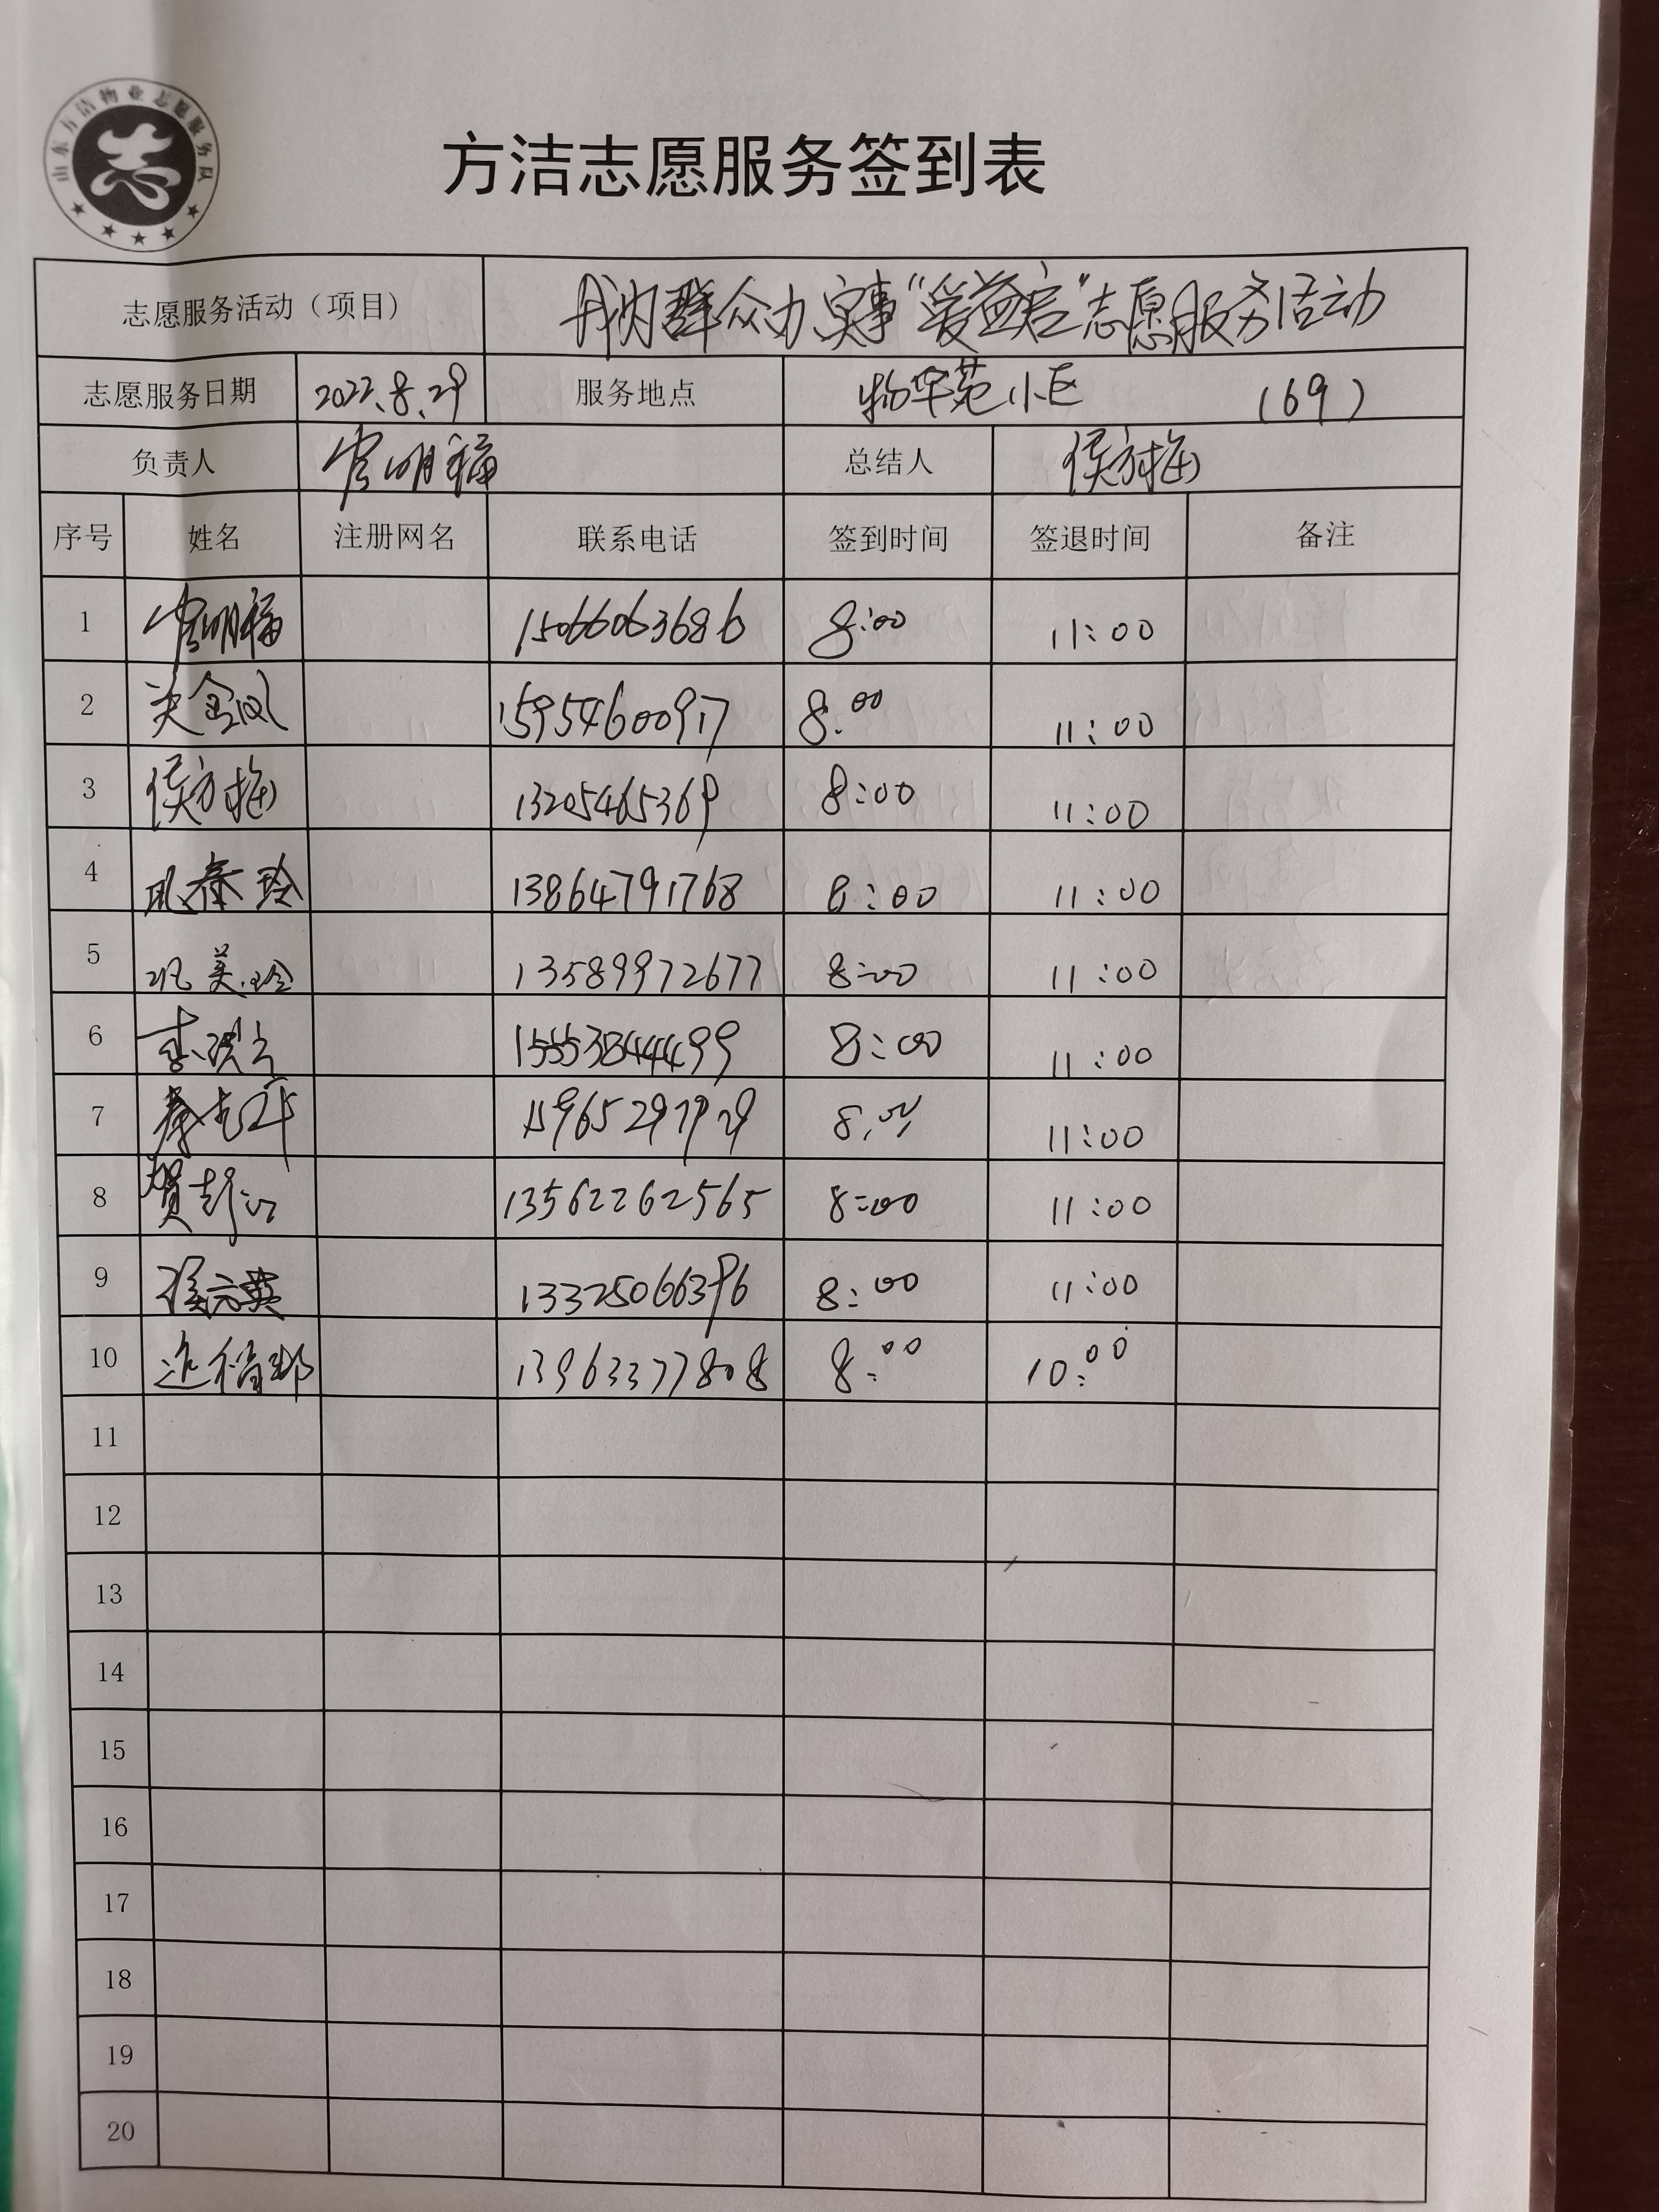 山东方洁物业志愿服务队
志
方洁志愿服务签到表
志愿服务活动（项目） 我为群众办实事“爱益启”志愿服务活动
志愿服务日期 2022.8.29 服务地点 物华苑小区 （69）
负责人 明福 总结人 侯方梅
序号 姓名 注册网名 联系电话 签到时间 签退时间 备注
1 明福 15066063686 8:00 11:00
2 关金凤 15954600917 8:00 11:00
3 侯方梅 13205465369 8:00 11:00
4 巩春玲 13864791768 8:00 11:00
5 巩美玲 13589972677 8:00 11:00
6 李 8:00 11:00
7 15965297929 8:00 11:00
8 贺 13562262565 8:00 11:00
9 英 13325066396 8:00 11:00
10 13963377808 8:00 10:00
11
12
13
14
15
16
17
18
19
20